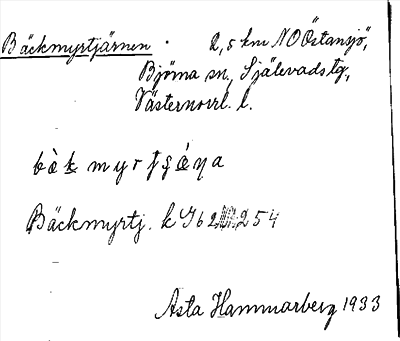 Bäckmyrtjärnen . 2,5 km NO Östansjö,
Björna sn., Själevads tg,
Västernorrl. l.
bàkmyrtjäṇa
Bäckmyrtj. k 9 6 2 254
Asta Hammarberg 1933